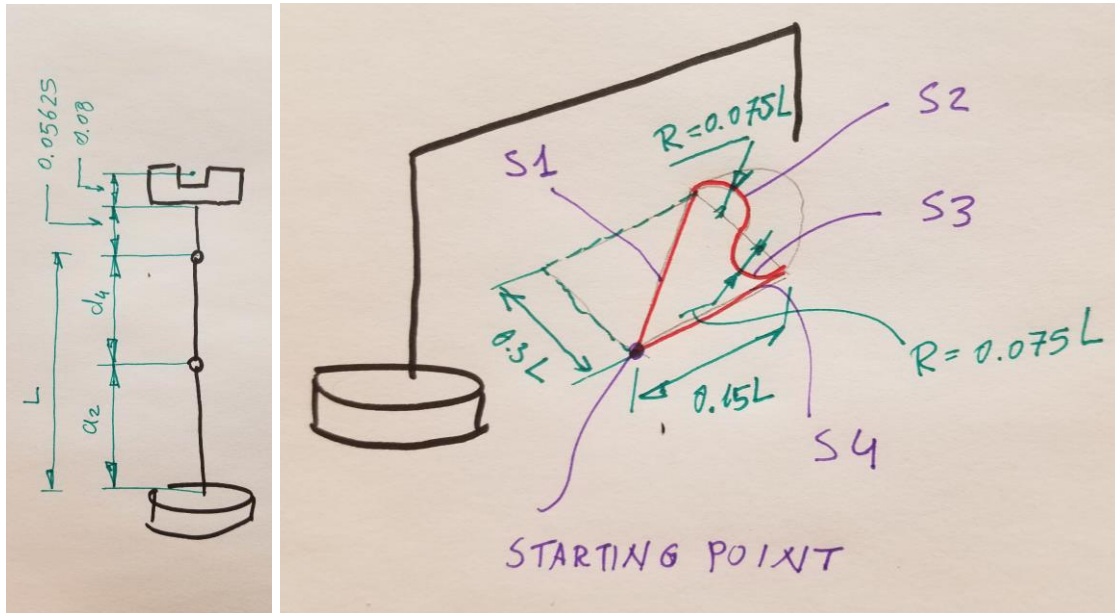 0.05625
0.08
L
d4
a2
R=0.075L
S2
S1
S3
0.3L
R=0.075L
0.15L
S4
STARTING POINT